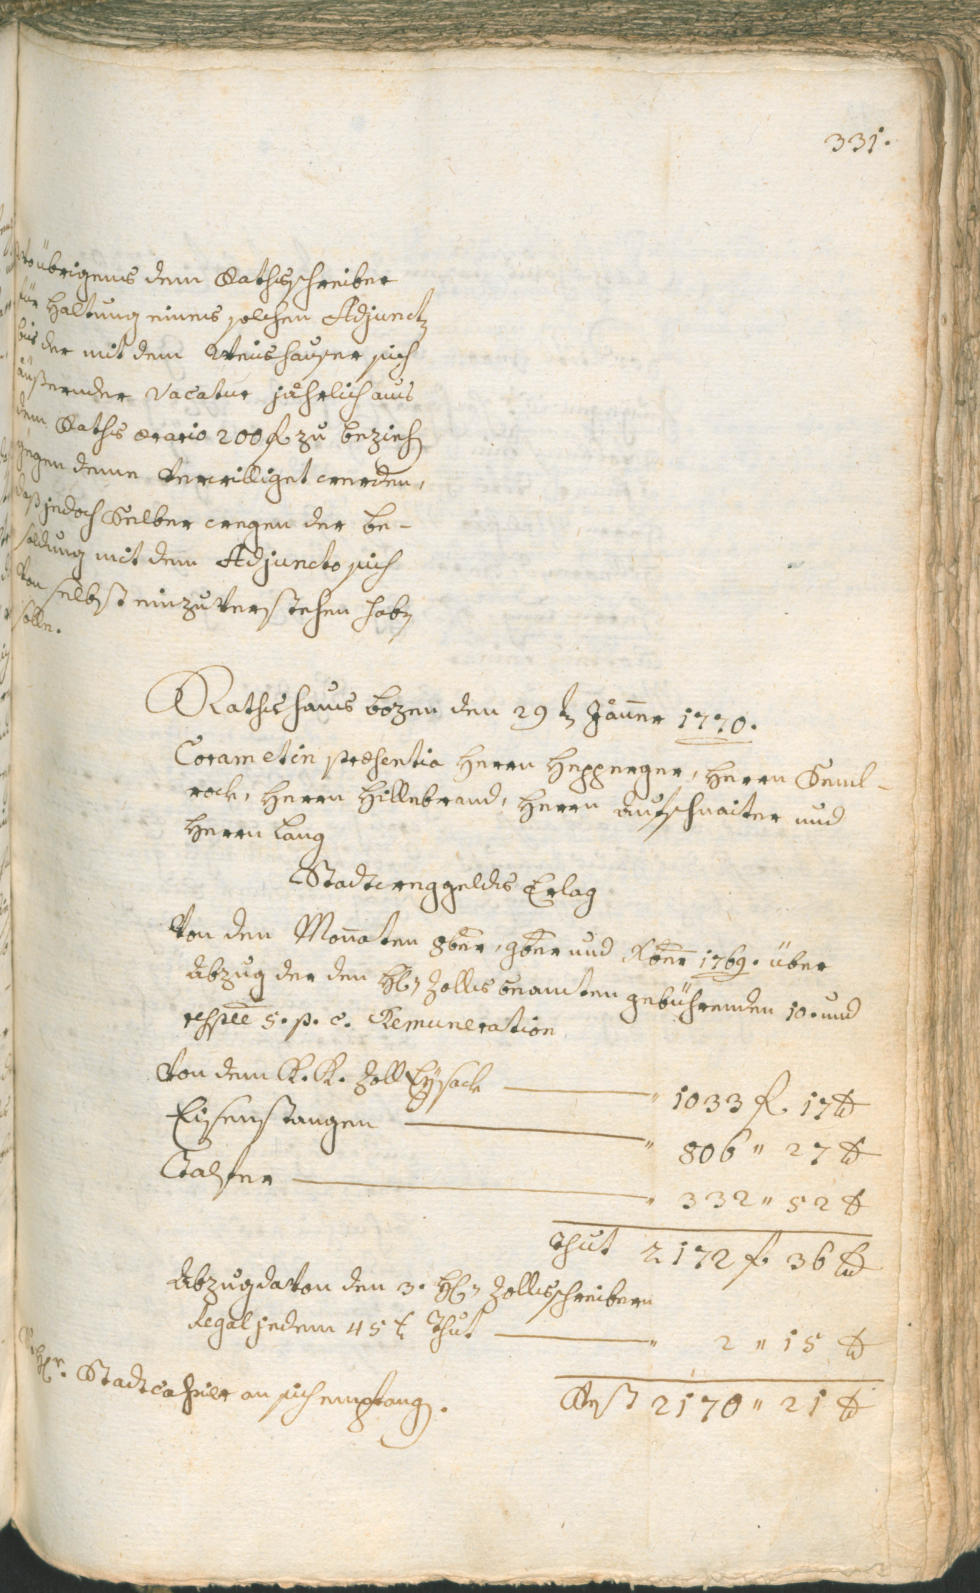 331.
übrigens dem Rathsschreiber
für Haltung eines solchen Adjuncti
bis der mit dem Weinhauser sich
äußernder Vacatur jährlich aus
dem Raths ærario 200 fl. zu bezieh
gegen deme verwilliget werden,
daß jedoch Selber wegen der be-
soldung mit dem Adjuncto sich
von selbst einzuverstehen hab
solle.
Rathshaus bozen den 29 t Jäner 1770.
Coram et in præsentia Herrn Hepperger, Herrn Graml-
rock, Herrn Hillebrand, Herrn Aufschnaiter und
Herrn Lang
Stadtweggelds Erlag
Von den Monaten 8ber, 9ber und Xber 1769. über
Abzug der den H Zollsbeamten gebührenden 10. und
respee 5. p. c. Remuneration
Von dem K. K. Zoll Eysack " 1033 fl. 17 x
Eisenstangen " 806 " 27 x
Talfer " 332 " 52 x
Thut 2172 f. 36 x
Abzug davon den 3. H Zollsschreibern
Regal jedem 45 x Thut " 2 " 15 x
Rest 2170 " 21 x
H. Stadtcassier an sich empfang.